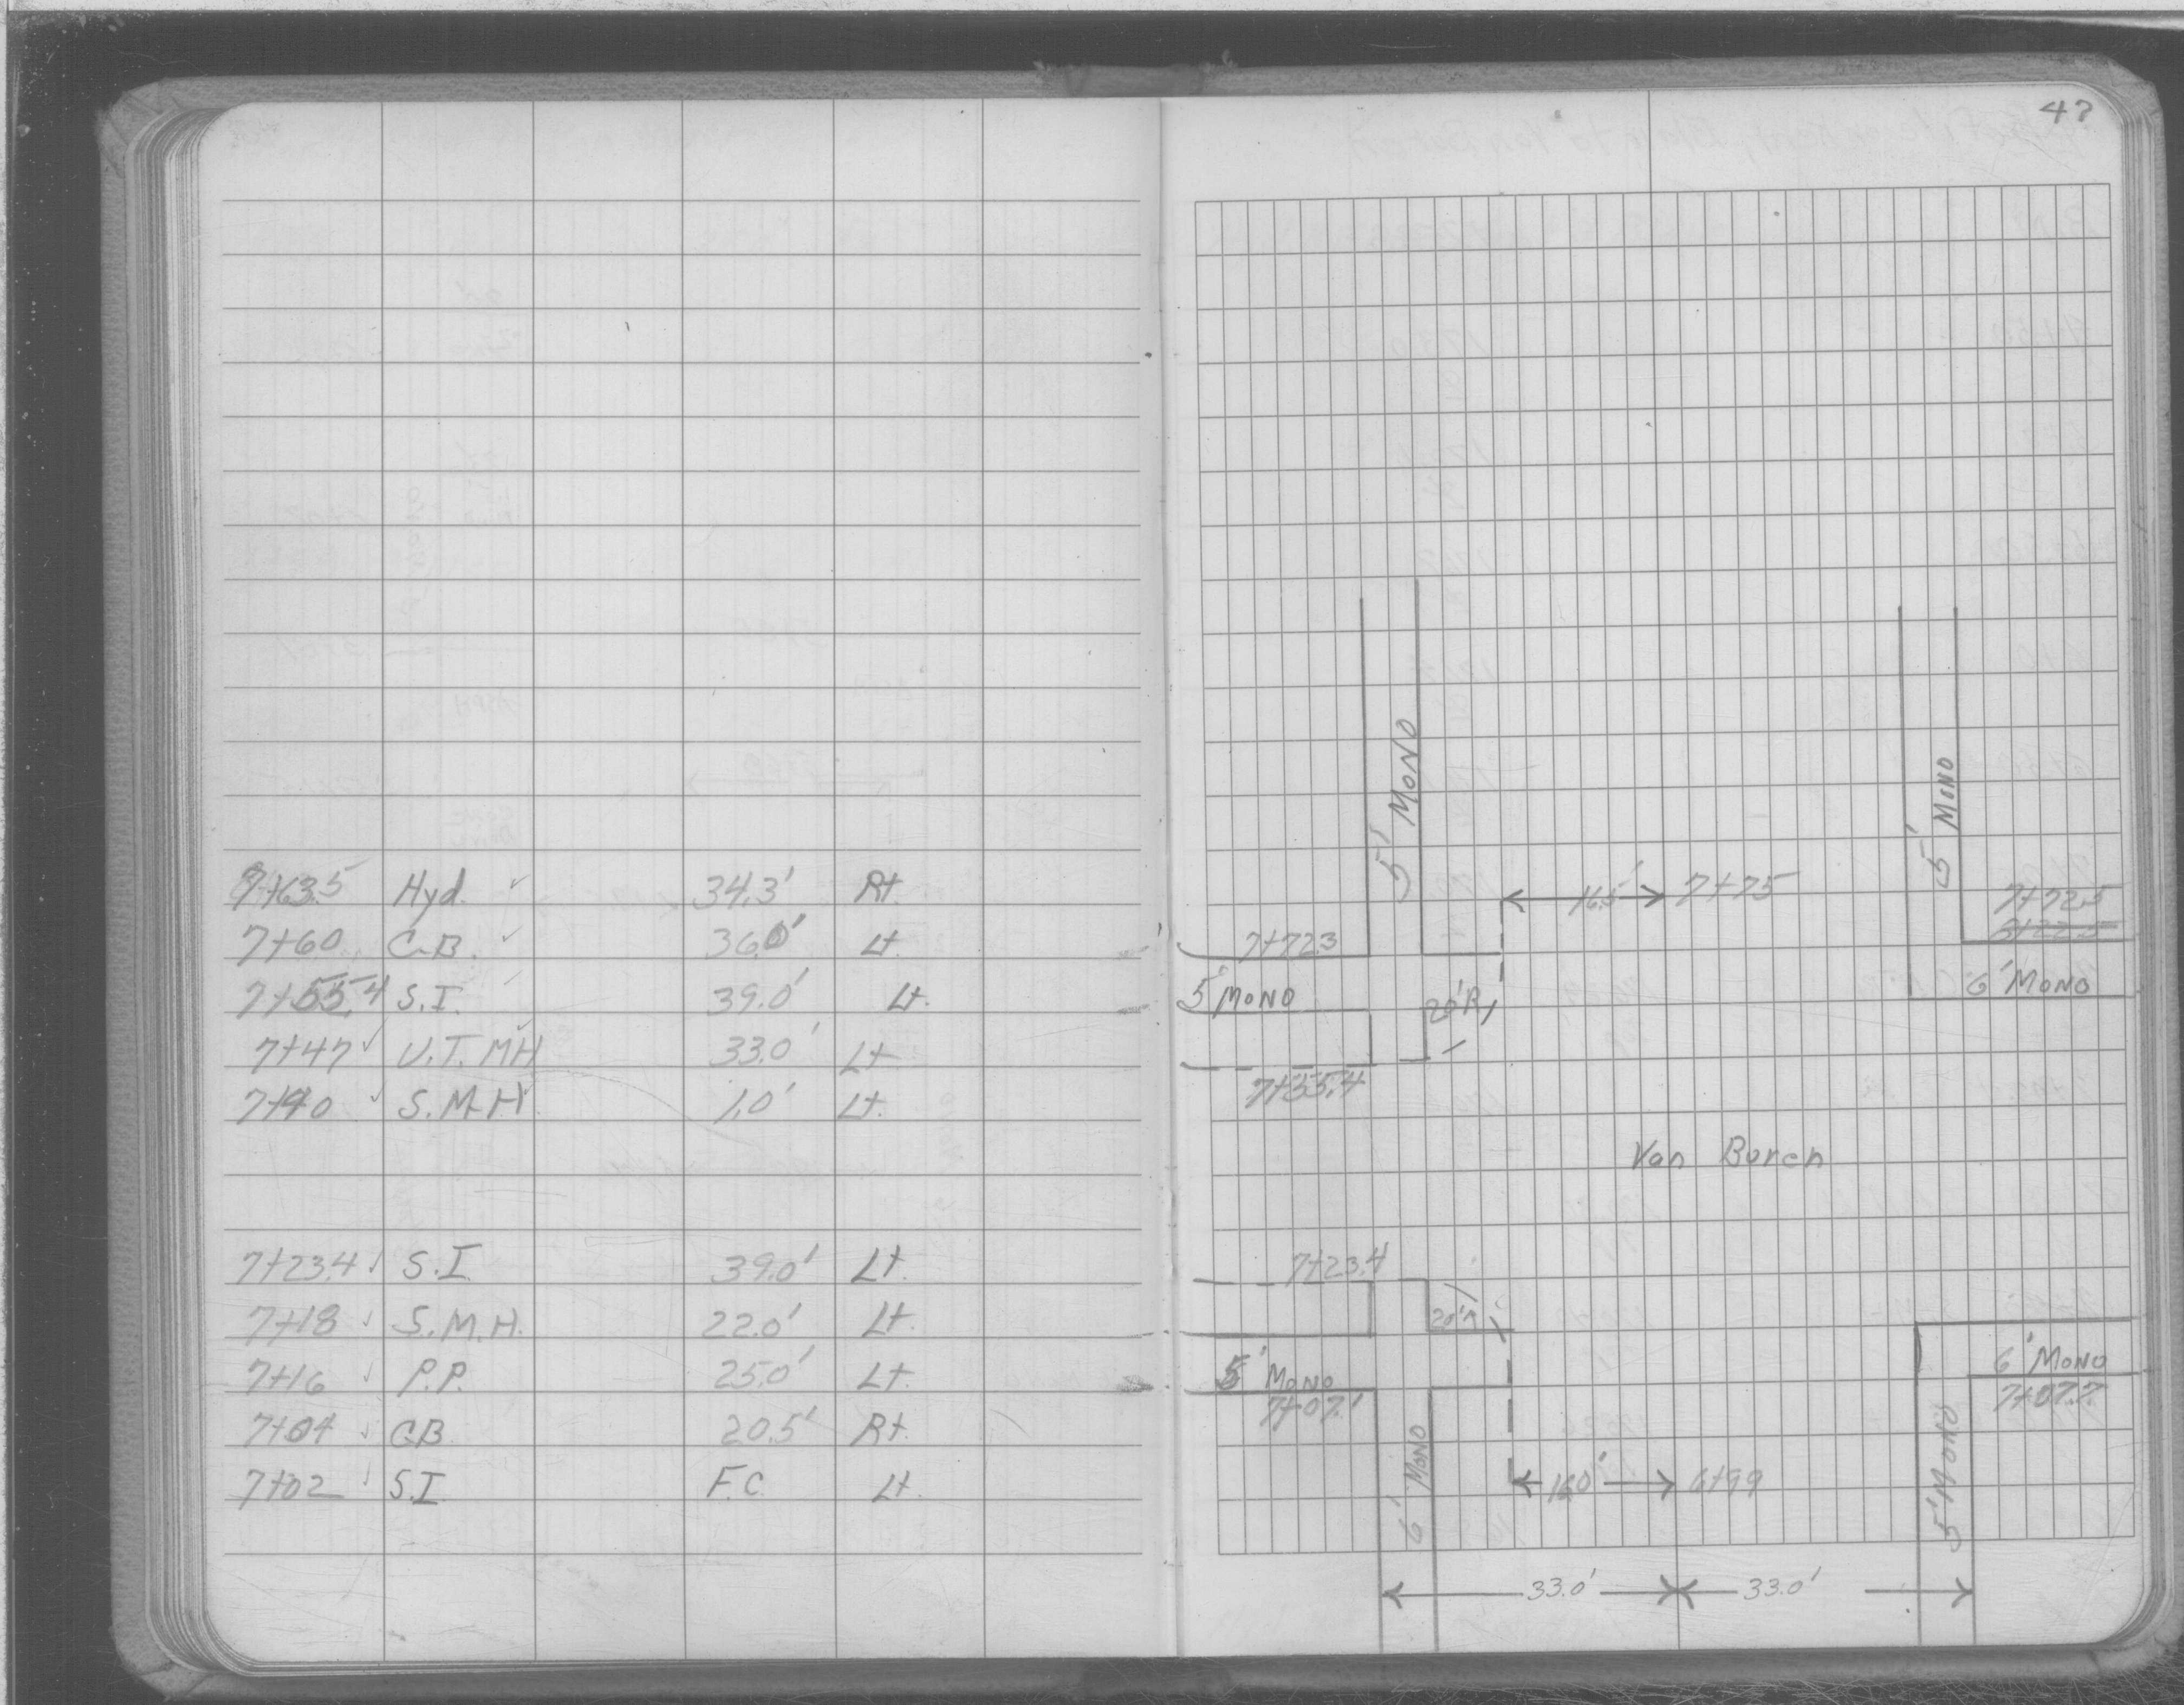 47
7+63.5 Hyd. ✓ 34.3' Rt.
7+60 C.B. ✓ 36.0' Lt.
7+55.4 S.I. 39.0' Lt.
7+47 ✓ U.T. MH 33.0' Lt
7+40 ✓ S.M.H. 1.0' Lt.
7+23.4 ✓ S.I. 39.0' Lt.
7+18 ✓ S.M.H. 22.0' Lt.
7+16 ✓ P.P. 25.0' Lt.
7+04 ✓ CB 20.5' Rt.
7+02 ✓ S.I F.C. Lt.
5' MONO
5' MONO
16.5' 7+75
7+72.5
6+22.5
7+72.3
5' MONO
20'R
6' MONO
7+55.4
Van Buren
7+23.4
20'R
5' MONO
7+07.1
6' MONO
7+07.7
6' MONO
5' MONO
16.0' 6+99
33.0' 33.0'